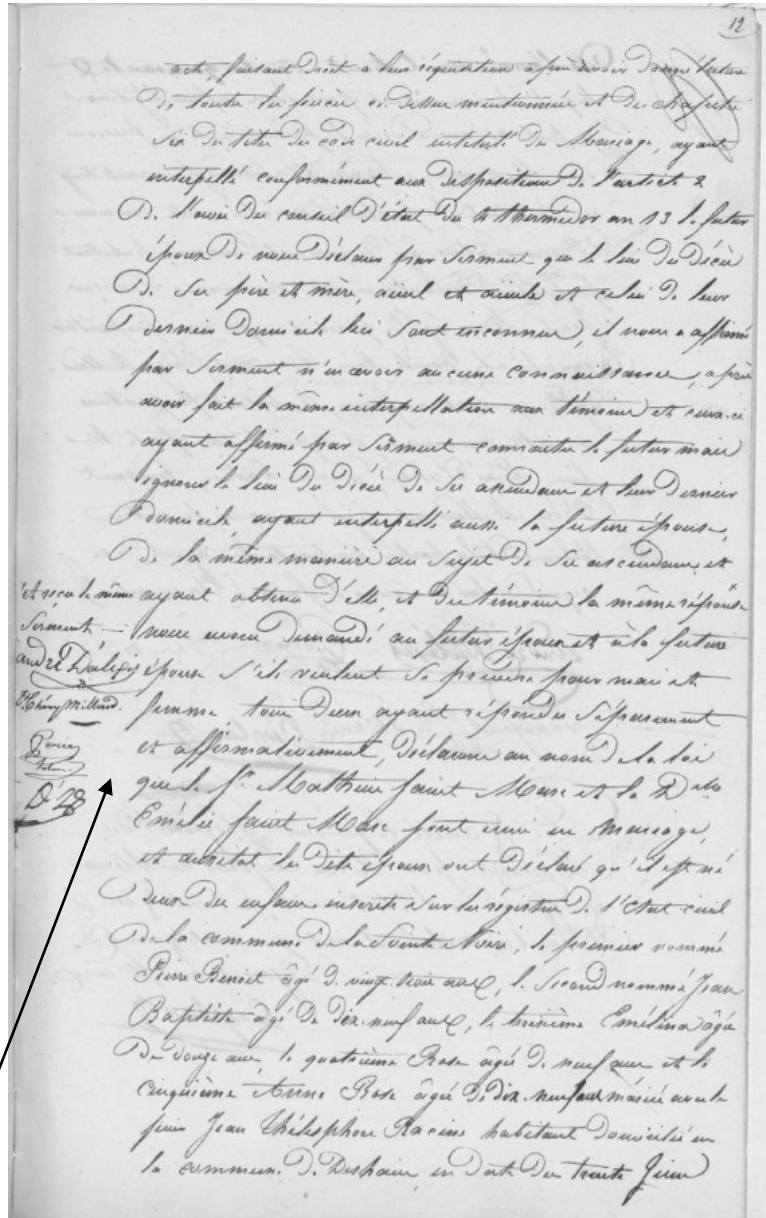 12
acte, faisant droit à leur réquisition après avoir donné lecture
De toutes les pièces ci dessus mentionnées et du chapitre
six du titre du code civil intitulé du Mariage, ayant
interpellé conformément aux dispositions de l'article 2
De l'avis du conseil d'état du 4 thermidor an 13 le futur
époux de nous déclarer par serment que le lieu du décès
De ses père et mère, aïeul et aïeule et celui de leur
Dernier domicile lui sont inconnus, il nous a affirmé
par serment n'en avoir aucune connaissance, après
avoir fait la même interpellation aux témoins et ceux-ci
ayant affirmé par serment connaître le futur mais
ignorer le lieu du décès de ses ascendans et leur dernier
domicile, ayant interpellé aussi la future épouse,
De la même manière au sujet de ses ascendans et
ayant obtenu d'elle, et des témoins la même réponse
nous avons demandé au futur époux et à la future
épouse s'ils veulent se prendre pour mari et
femme tous deux ayant répondu séparément
et affirmativement, déclarons au nom de la loi
que le Sr. Mathieu Saint Marc et la Dlle
Emélie Saint Marc sont unis en mariage,
et aussitot les dits époux ont déclaré qu'il est né
Deux des enfans inscrits sur les régistres de l'état civil
De la commune de la Pointe Noire, le premier nommé
Pierre Benoit âgé de vingt trois ans, le second nommé Jean
Baptiste âgé de dix-neuf ans, le troisième Emélina âgée
De douze ans, le quatrième Rose âgée de neuf ans et le
cinquième Anne Rose âgée de dix-neuf ans mariée avec le
sieur Jean Thélesphore Racine habitant domicilié en
la commune de Deshaies, en date du trente Juin
et reçu le même
Serment
André Dalexis
Chéry Millard